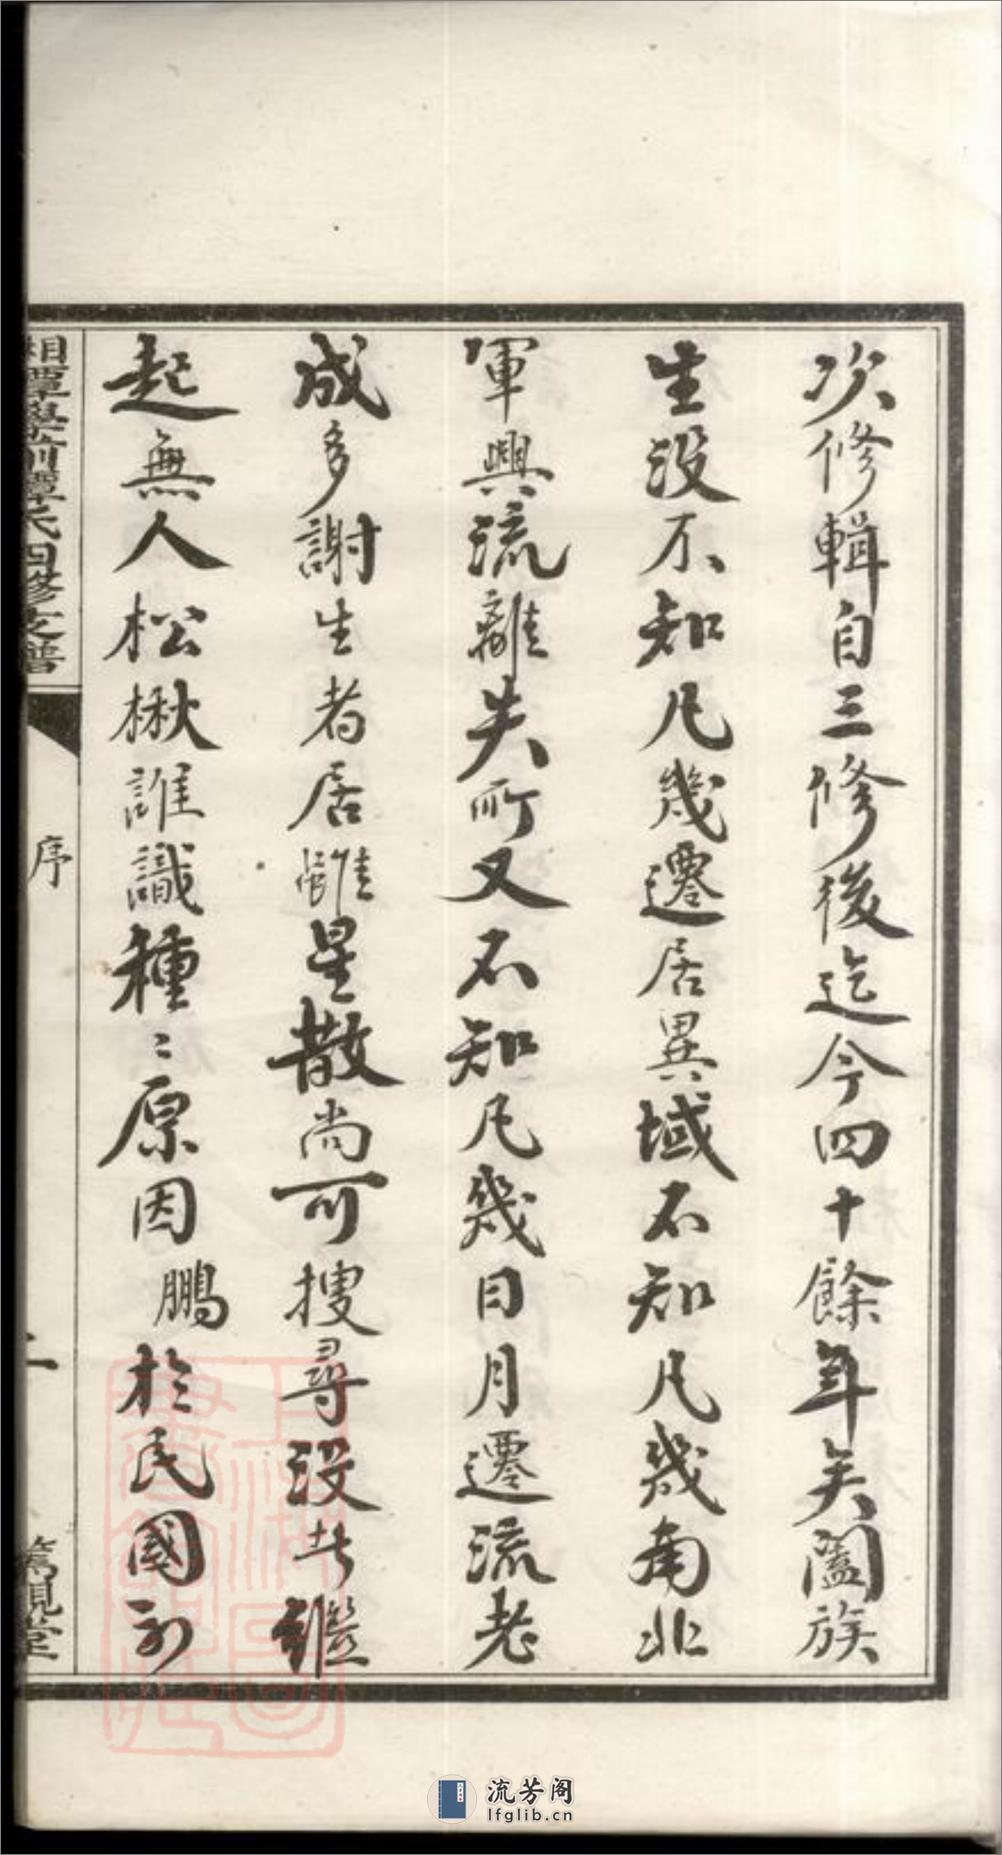 次修輯自三修後迄今四十餘年矣闔族
生沒不知凡幾遷居異域不知凡幾南北
軍興流離失所又不知凡幾日月遷流老
成多謝生者居雖星散尚可搜尋沒者繼
起無人松楸誰識種〻原因鵬於民國初
湘潭學前譚氏四修支譜
序
二
篤親堂
流芳阁
lfglib.cn